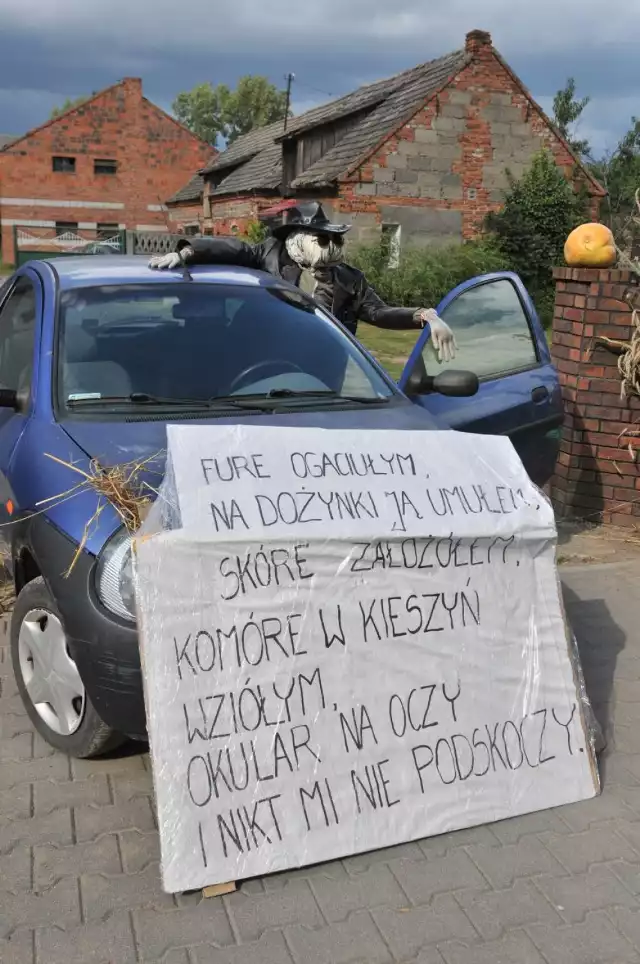 FURE OGACIUŁYM,
NA DOŻYNKI JĄ UMUŁEM,
SKÓRE ZAŁOŻÓŁEM,
KOMÓRE W KIESZYŃ
WZIÓŁYM,
OKULAR NA OCZY
I NIKT MI NIE PODSKOCZY.